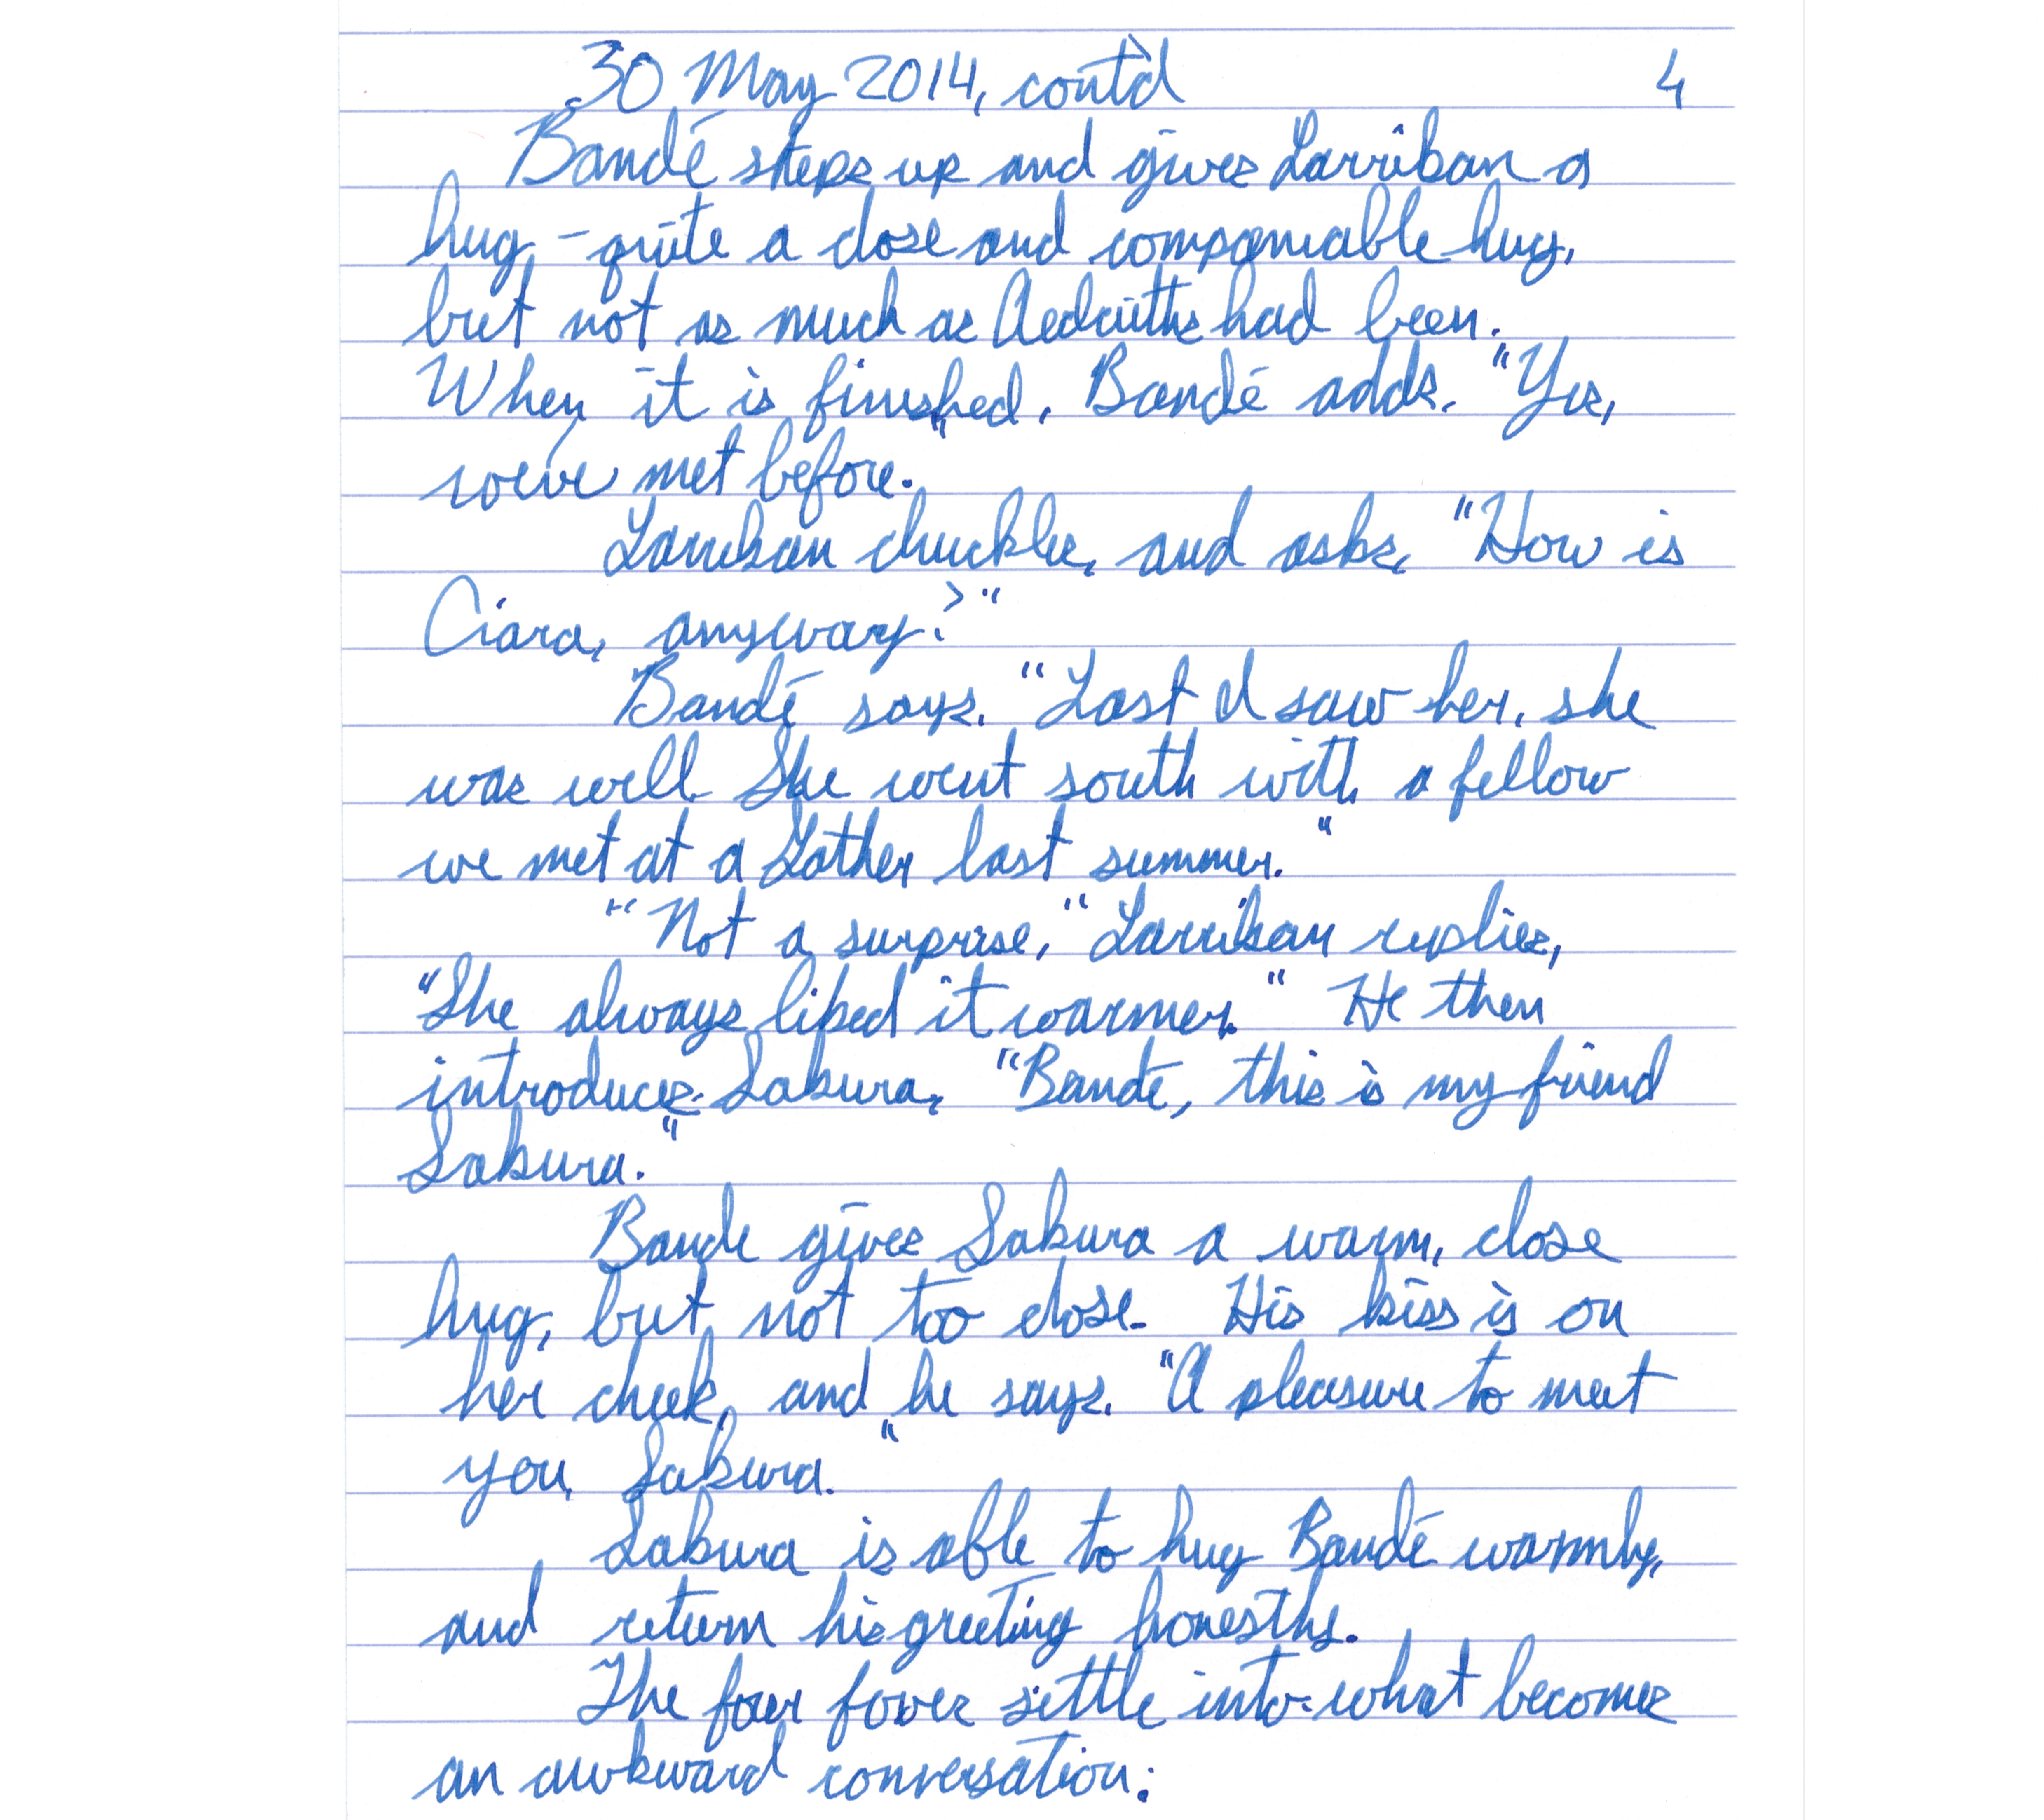 30 May 2014, cont'd 4
Bandé steps up and gives Larriban a
hug – quite a close and companiable hug,
but not as much as Aedciiths had been.
When it is finished, Bandé adds, "Yes,
we've met before."
Larriban chuckles, and asks, "How is
Ciara, anyway?"
Bandé says, "Last I saw her, she
was well. She went south with a fellow
we met at a Gather last summer."
"Not a surprise," Larriban replies,
"She always liked it warmer." He then
introduces Sakura, "Bandé, this is my friend
Sakura."
Bande gives Sakura a warm, close
hug, but not too close. His kiss is on
her cheek, and he says, "A pleasure to meet
you, Sakura."
Sakura is able to hug Bandé warmly,
and return his greeting honestly.
The four foxes settle into what becomes
an awkward conversation: